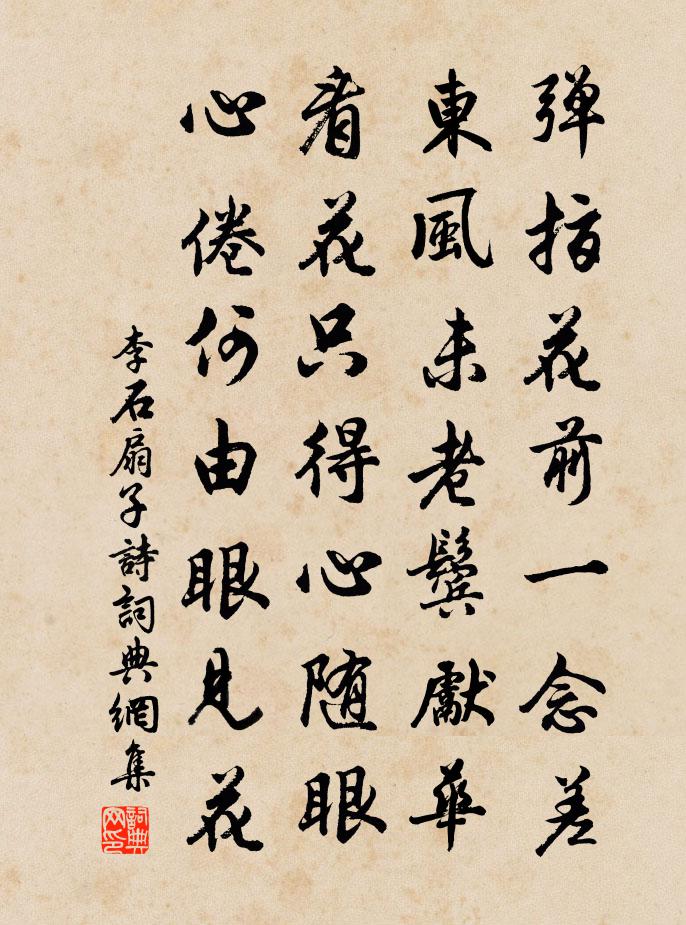 彈指花前一念差
東風未老鬢獻華
看花只得心隨眼
心倦何由眼見花
李石扇子詩詞典網集
詞典網印